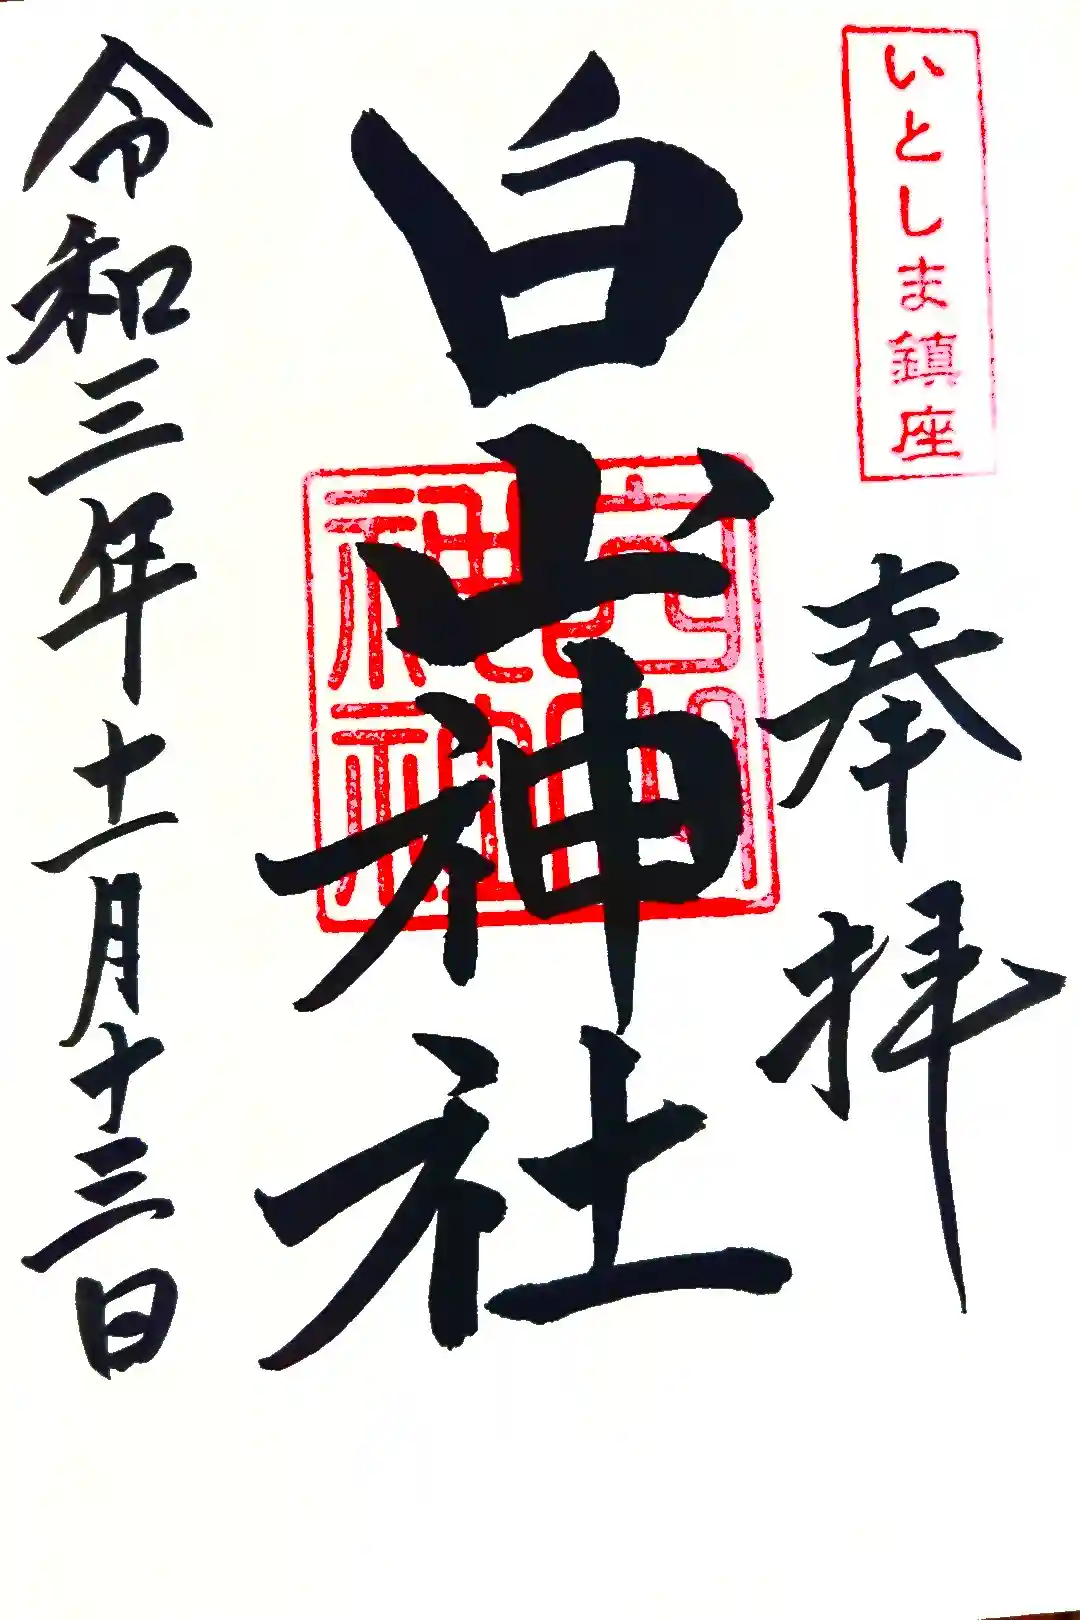 いとしま鎮座
奉拝
白山神社
白山神社
令和三年十一月十三日